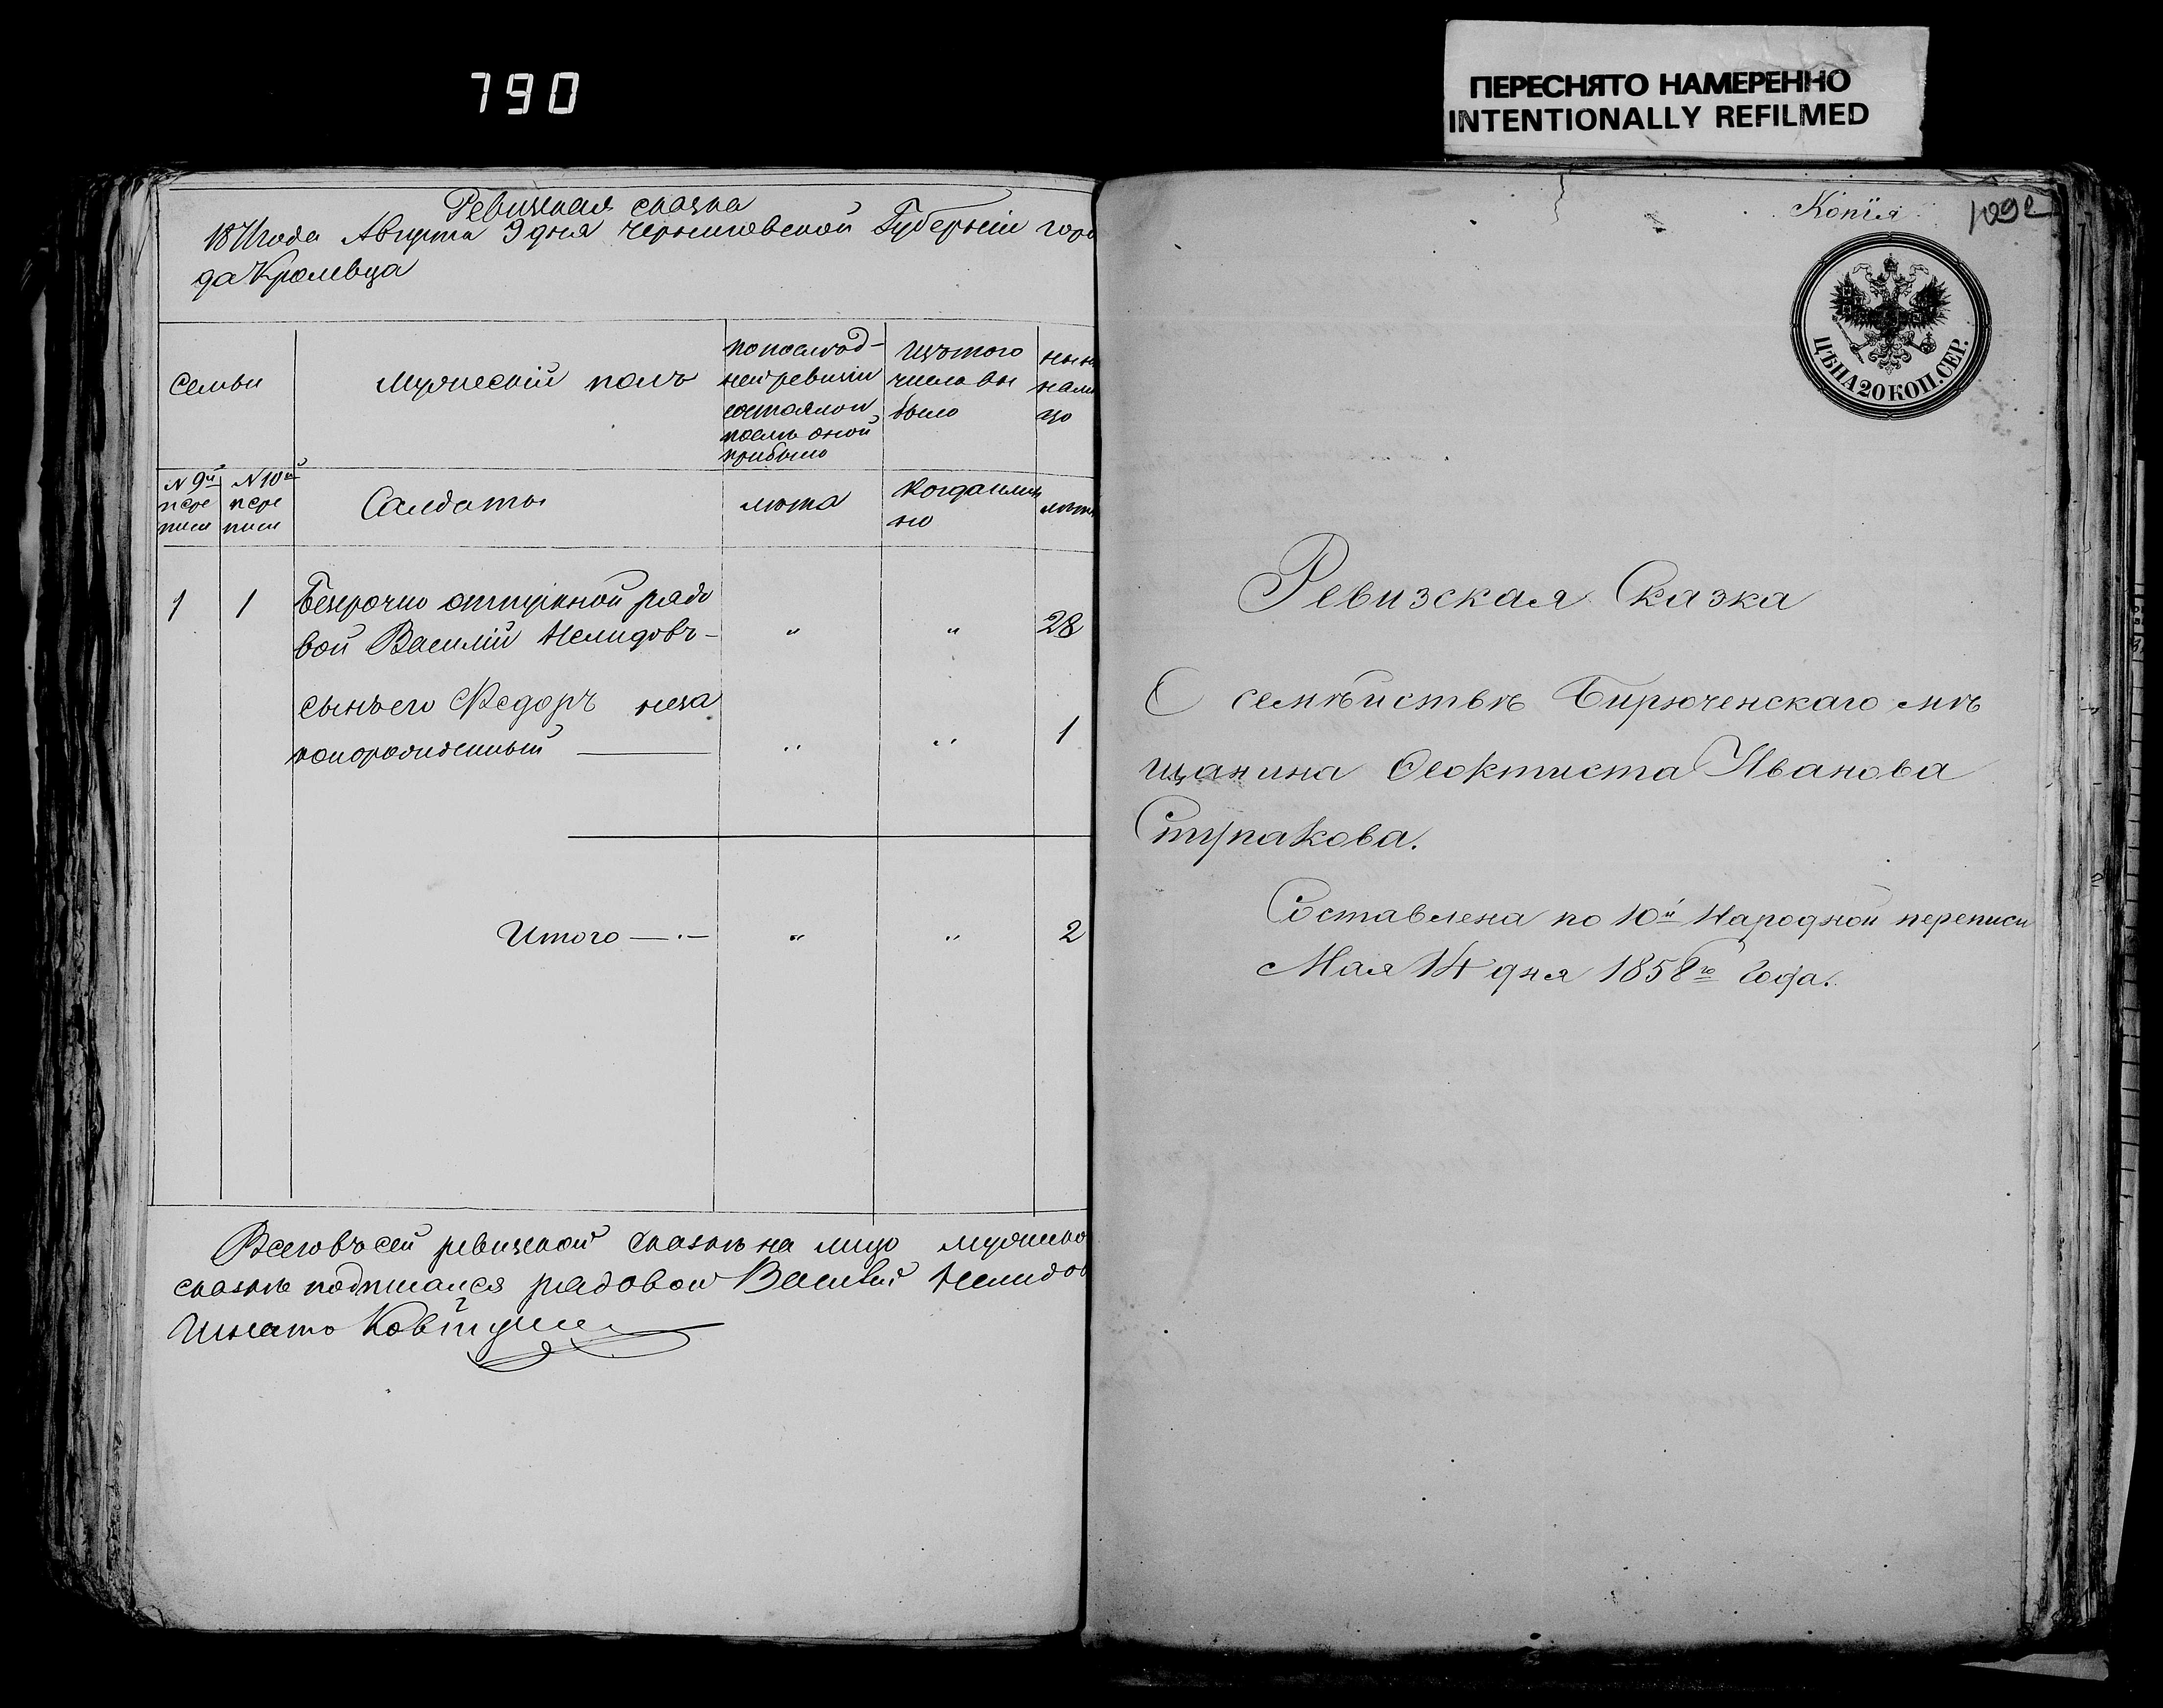 790
ПЕРЕСНЯТО НАМЕРЕННО
INTENTIONALLY REFILMED
Ревизская сказка
1871 года Августа 9 дня Черниговской Губернiи горо
да Кролевца
Семьи
Мужескiй полъ
попослѣд-
ней ревизiи
состоялои
послѣ оной
прибыло
Изътого
числа вы
было
нынѣ
нали
цо
N 9й
пере
писи
N 10й
пере
писи
Салдаты
лѣта
Когдаимен
но
лѣта
1 1 Безсрочно отпускной рядо
вой Василiй Нелидовъ - " " 28
сынъего Федоръ неза
коннорожденный " " 1
Итого " " 2
Всеговъсей ревизской сказкѣ на лицо мужеско
сказкѣ подписался рядовой Василiй Нелидов
Копiя
ЦѢНА 20 КОП. СЕР.
Ревизская Сказка
О семѣйствѣ Бирюченскаго мѣ
щанина Феоктиста Иванова
Ступакова.
Составлена по 10й Народной переписи
Мая 14 дня 1858го Года.